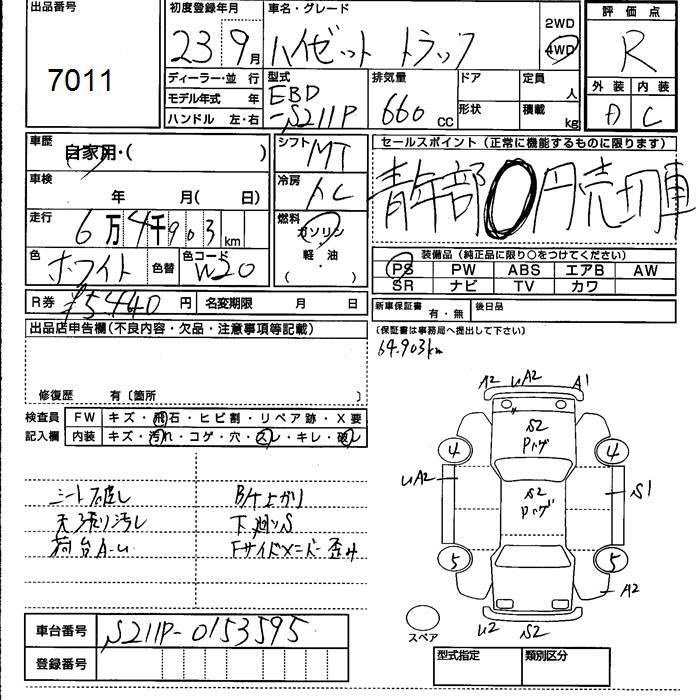 出品番号
7011
初度登録年月
23 9月
車名・グレード
ハイゼット トラック
2WD
4WD
評価点
R
外装 内装
A C
ディーラー・並行
モデル年式 年
ハンドル 左・右
型式
EBD
-S211P
排気量
660 cc
ドア
形状
定員
人
積載
kg
車歴
自家用・( )
シフト MT
車検
年 月( 日)
冷房
AC
走行
6万4千903km
燃料
ガソリン
軽・油
( ・ )
色
ホワイト
色替
色コード
W20
R券 ¥5,440 円 名変期限 月 日
セールスポイント(正常に機能するものに限ります)
青年部 0円売切車
装備品(純正品に限り○をつけてください)
PS PW ABS エアB AW
SR ナビ TV カワ
新車保証書 有・無 後日品
(保証書は事務局へ提出して下さい)
64,903km
出品店申告欄(不良内容・欠品・注意事項等記載)
修復歴 有〔箇所 〕
検査員
記入欄
FW キズ・飛石・ヒビ割・リペア跡・X要
内装 キズ・汚れ・コゲ・穴・スレ・キレ・破レ
シート破し B/ナ上がり
天張り汚し 下廻りS
荷台A-U Fサイドメンバー歪み
A2 UA2 A1
S2
Pハゲ
4 4
UA2
S2
Pハゲ
S1
5 5
A2
U2 S2
スペア
車台番号 S211P-0153595
登録番号
型式指定 類別区分